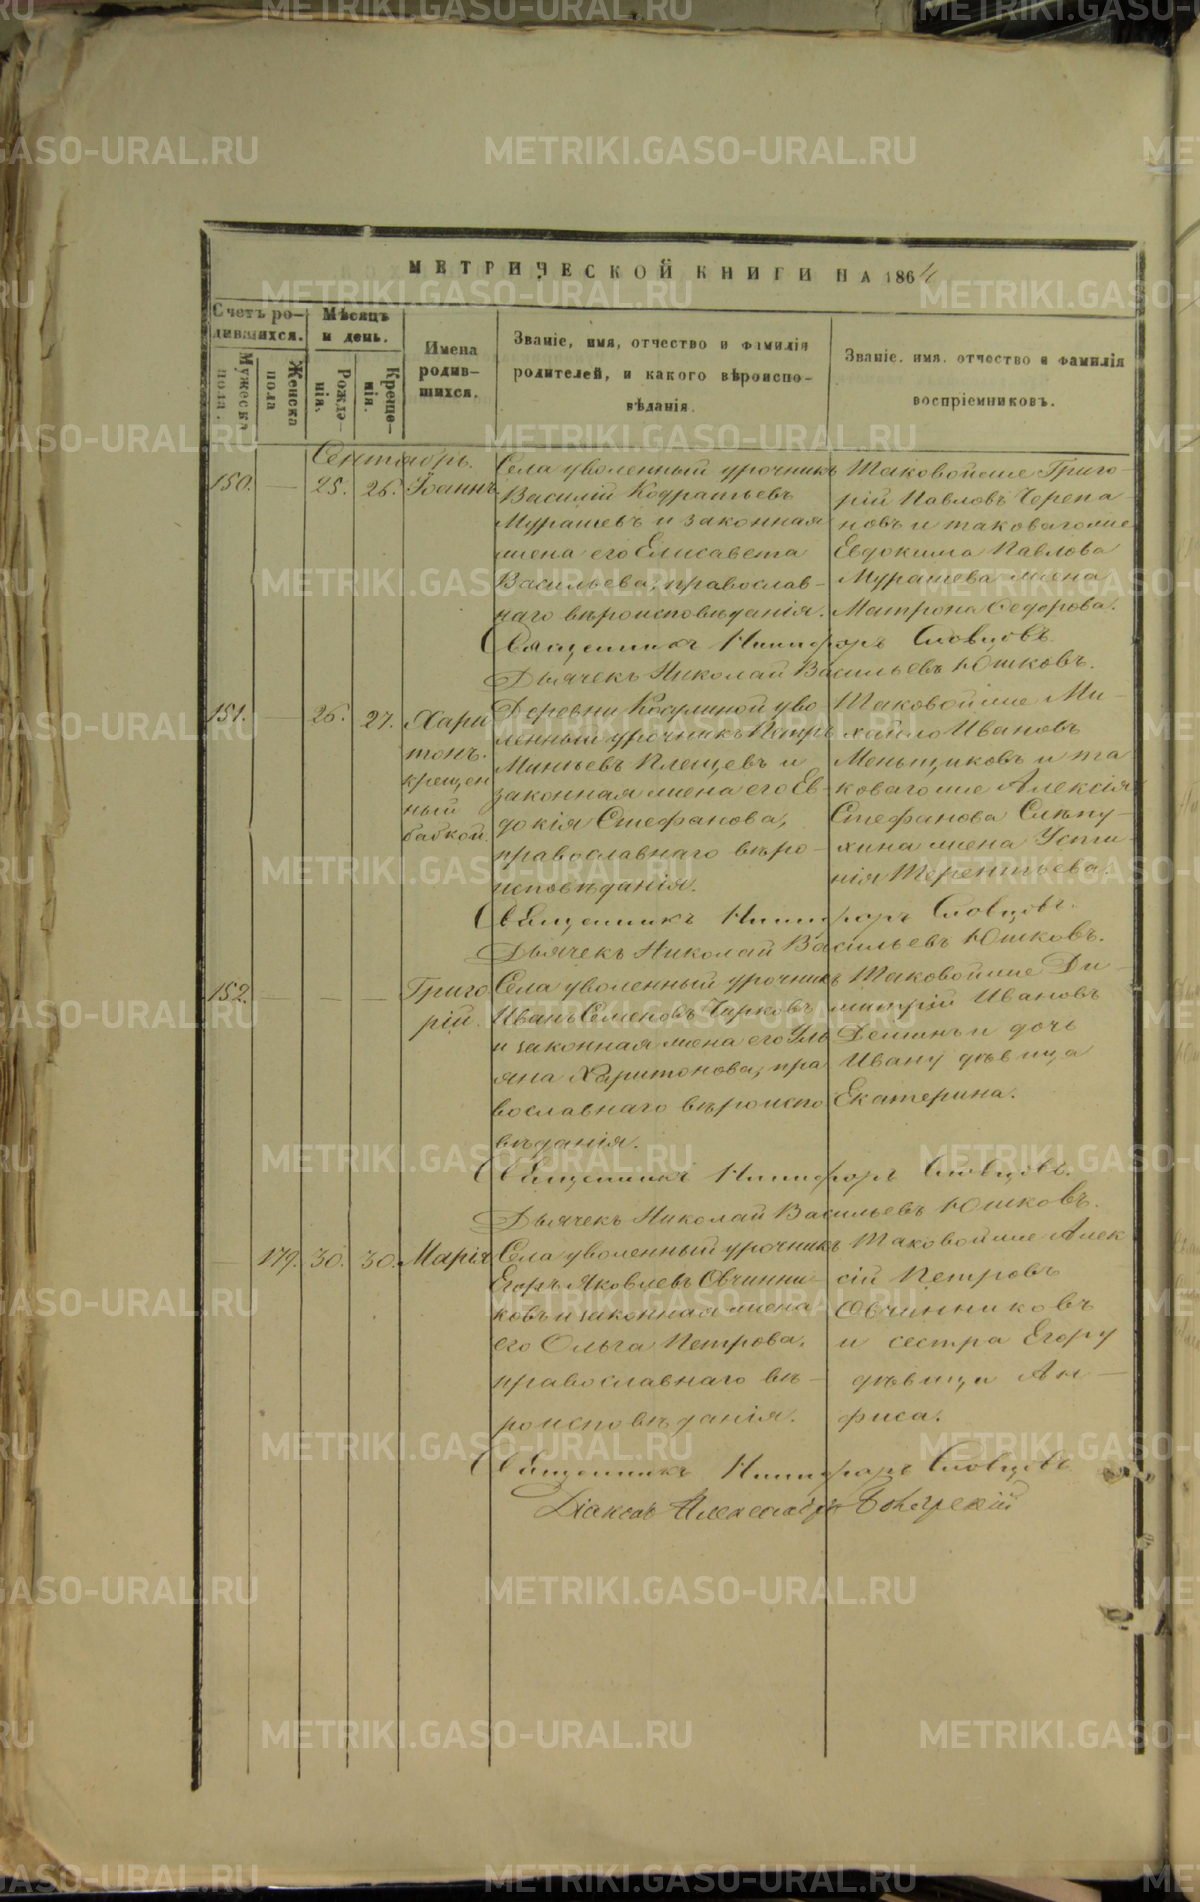 МЕТРИЧЕСКОЙ КНИГИ НА 1864
Счетъ ро-
дившихся.
Мужеска
пола.
Женска
пола
Мѣсяцъ
и день.
Рожде-
нія.
Креще-
нія.
Имена
родив-
шихся.
Званіе, имя, отчество и фамилія
родителей, и какого вѣроиспо-
вѣданія.
Званіе, имя, отчество и фамилія
воспріемниковъ.
Сентябрь.
150. — 25. 26. Іоаннъ
Села уволенный урочникъ
Василій Кодратьевъ
Мурашевъ и законная
жена его Елисавета
Васильева, православ-
наго вѣроисповѣданія.
Таковойже Григо-
рій Павловъ Черепа-
новъ и таковагоже
Евдокима Павлова
Мурашева жена
Матрона Ѳедорова.
Священникъ Никифоръ Словцовъ
Дьячекъ Николай Васильевъ Юшковъ.
151. — 26. 27. Хари
тонъ.
крещен
ный
бабкой.
Деревни Косулиной уво
ленный урочникъ Петръ
Миньевъ Плещевъ и
законная жена его Ев-
докія Стефанова,
православнаго вѣро-
исповѣданія.
Таковойже Ми-
хайло Ивановъ
Меньщиковъ и та
ковагоже Алексія
Стефанова Слѣпу-
хина жена Усти-
нія Терентьева.
Священникъ Никифоръ Словцовъ.
Дьячекъ Николай Васильевъ Юшковъ.
152. — — — Григо
рій.
Села уволенный урочникъ
Иванъ Семеновъ Чирковъ
и законная жена его Уль
яна Харитонова, пра
вославнаго вѣроиспо
вѣданія.
Таковойже Ди-
митрій Ивановъ
и дочь
Ивану дѣвица
Екатерина.
Священникъ Никифоръ Словцовъ.
Дьячекъ Николай Васильевъ Юшковъ.
— 179. 30. 30. Марія
Села уволенный урочникъ
Егоръ Яковлевъ Овчинни-
ковъ и законная жена
его Ольга Петрова,
православнаго вѣ-
роисповѣданія.
Таковойже Алек
сій Петровъ
Овчинниковъ
и сестра Егору
дѣвица Ан-
фиса.
Священникъ Никифоръ Словцовъ
Діаконъ Александръ
METRIKI.GASO-URAL.RU